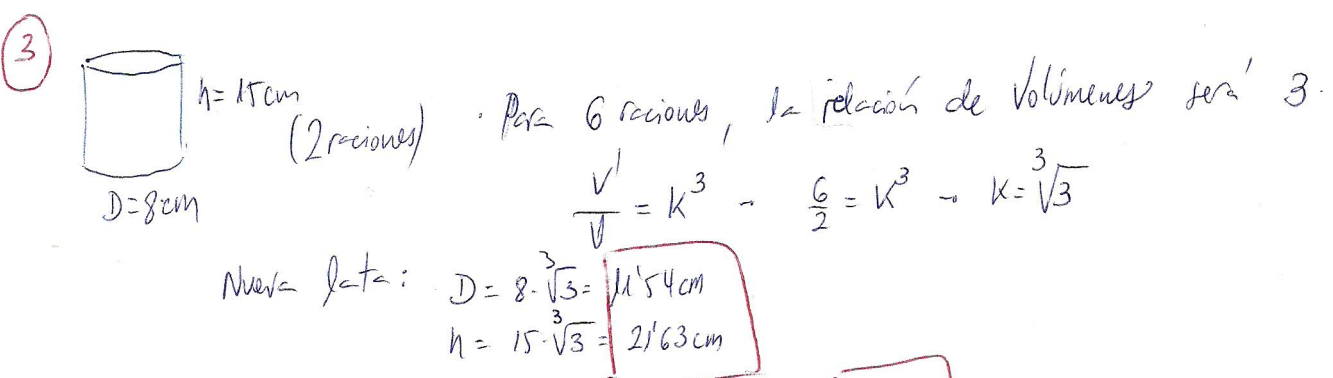 3
h = 15 cm
(2 raciones)
D = 8 cm
· Para 6 raciones, la relación de volúmenes será 3.
V'/V = K³ → 6/2 = K³ → K = ∛3
Nueva lata: D = 8·∛3 = 11'54 cm
h = 15·∛3 = 21'63 cm